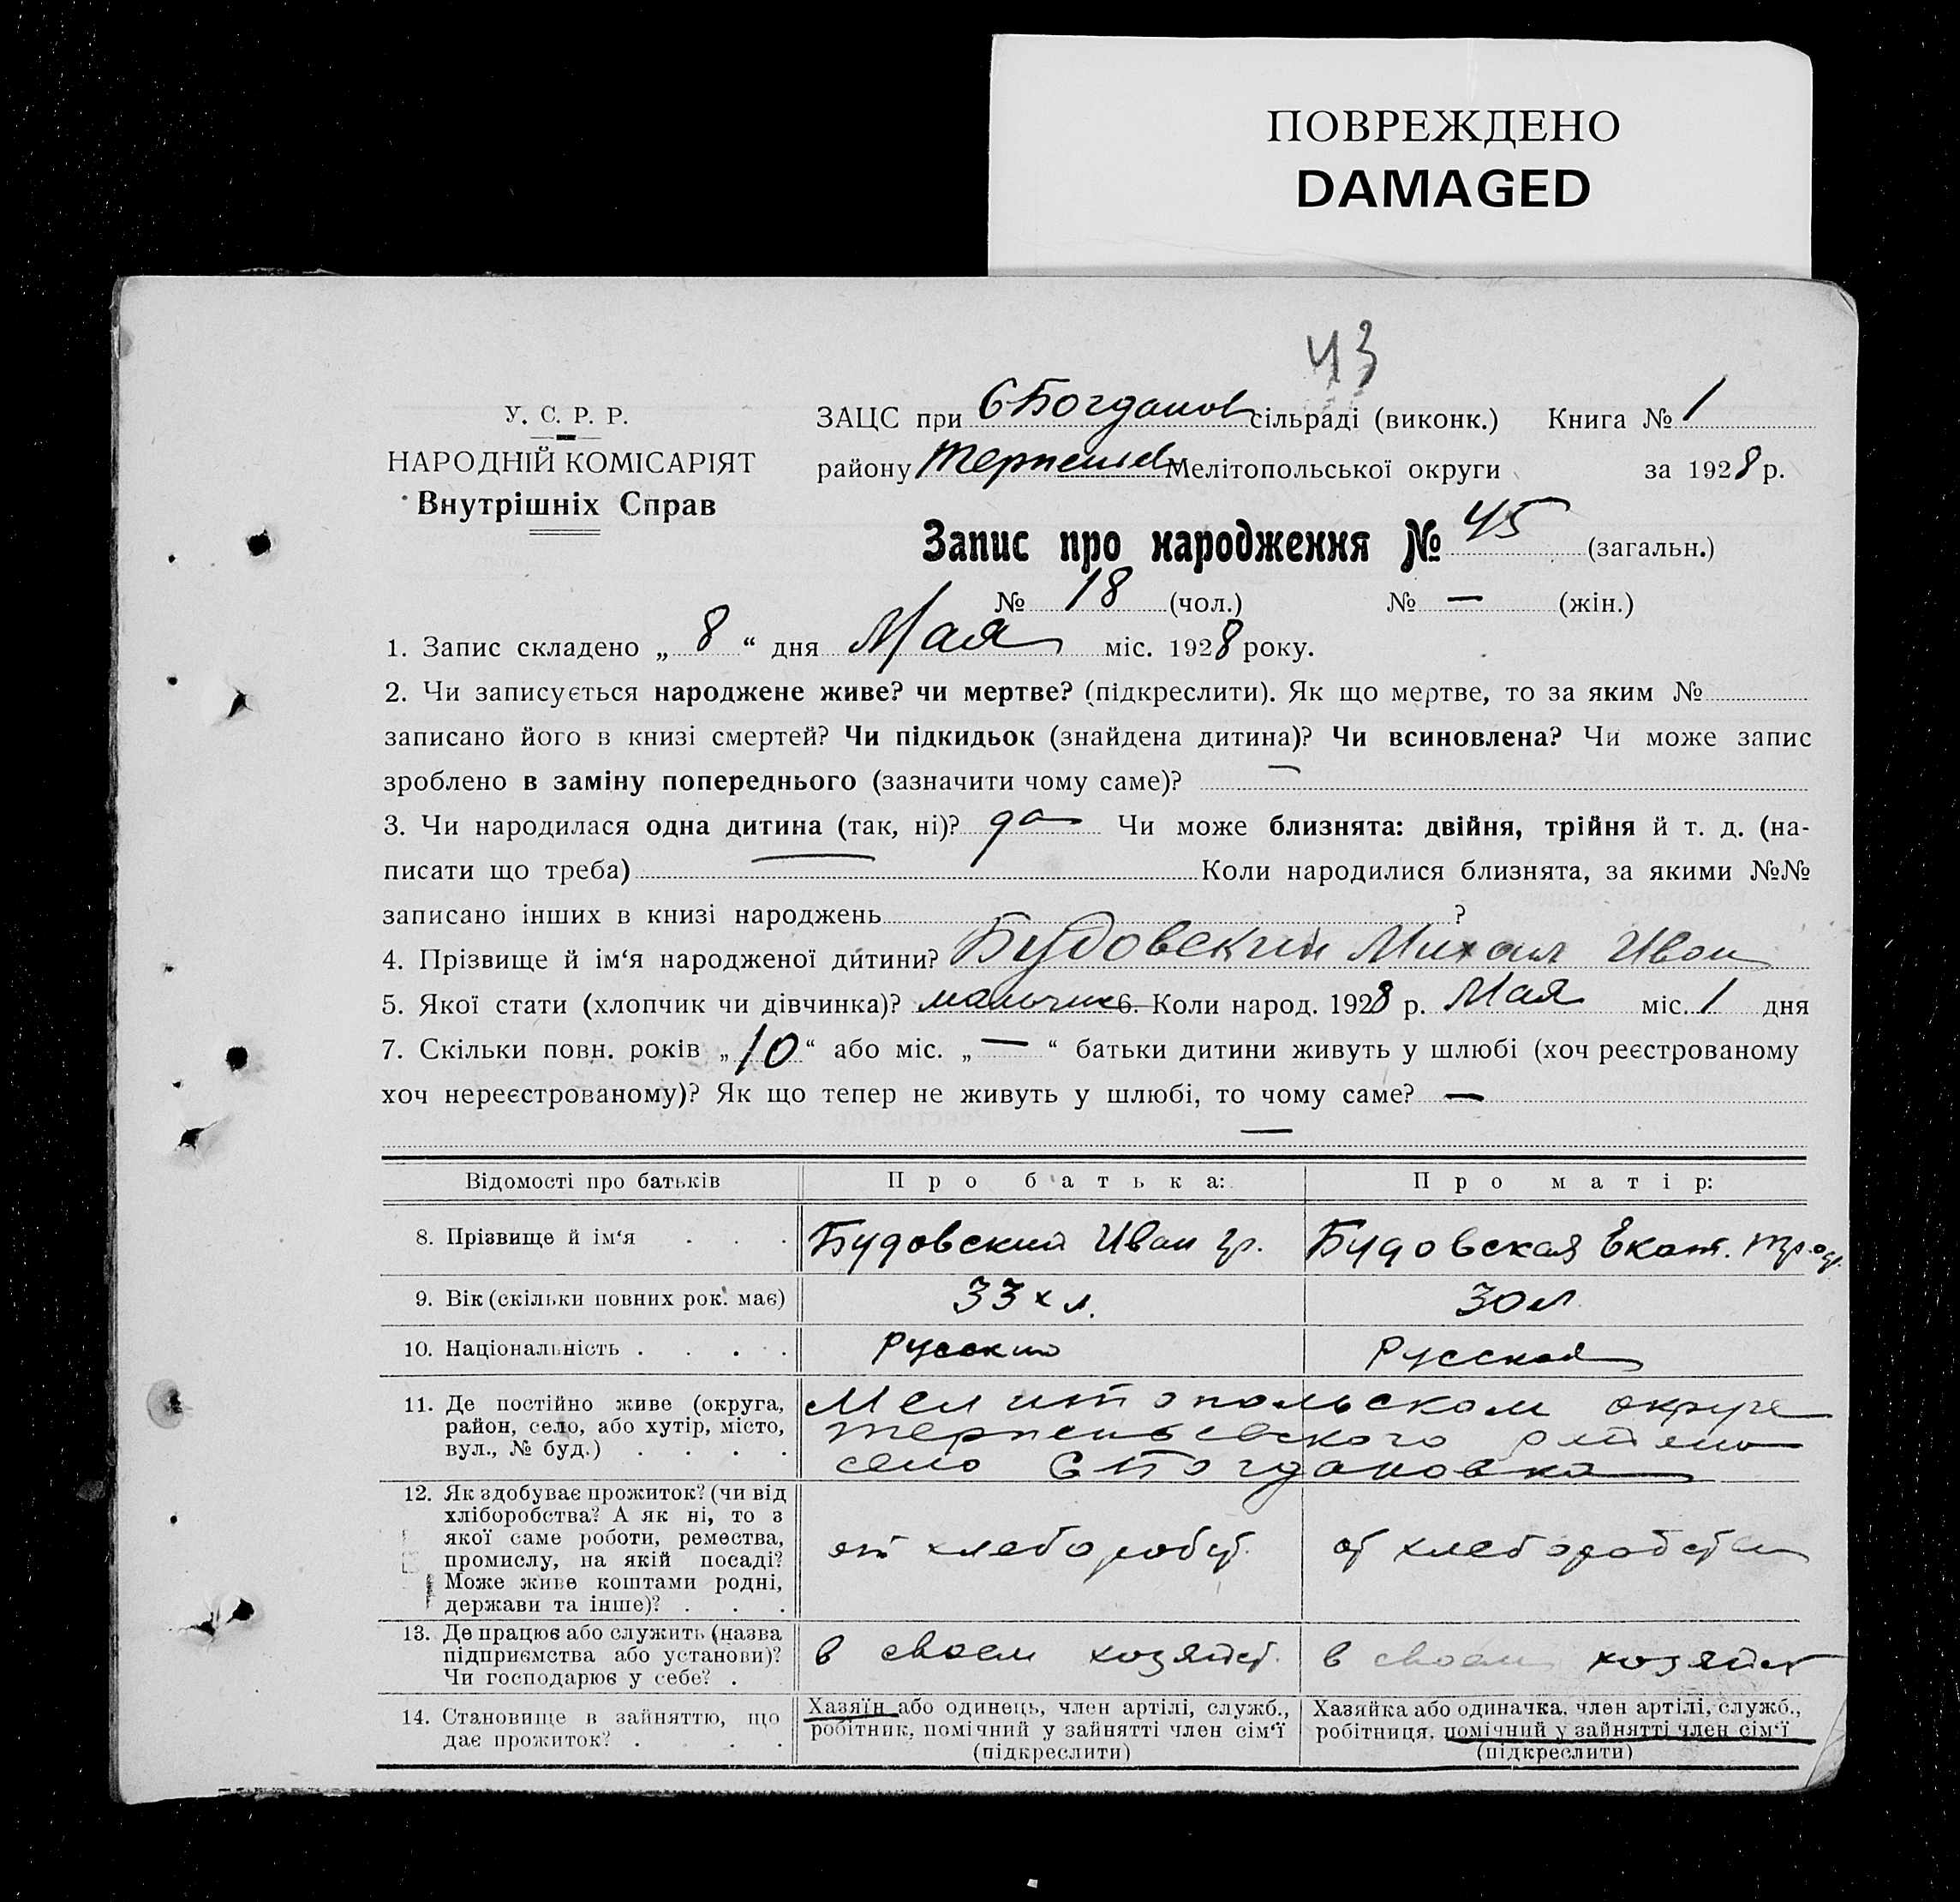 ПОВРЕЖДЕНО
DAMAGED
43
У. С. Р. Р.
НАРОДНІЙ КОМІСАРІЯТ
Внутрішніх Справ
ЗАЦС при СБогданов сільраді (виконк.) Книга № 1
району Терпениев Мелітопольської округи за 1928 р.
Запис про народження № 45 (загальн.)
№ 18 (чол.) № — (жін.)
1. Запис складено „ 8 “ дня Мая міс. 1928 року.
2. Чи записується народжене живе? чи мертве? (підкреслити). Як що мертве, то за яким №
записано його в книзі смертей? Чи підкидьок (знайдена дитина)? Чи всиновлена? Чи може запис
зроблено в заміну попереднього (зазначити чому саме)? —
3. Чи народилася одна дитина (так, ні)? да Чи може близнята: двійня, трійня й т. д. (на-
писати що треба) — Коли народилися близнята, за якими №№
записано інших в книзі народжень ?
4. Прізвище й ім‘я народженої дитини? Будовский Михаил Иван
5. Якої стати (хлопчик чи дівчинка)? мальчик 6. Коли народ. 1928 р. Мая міс. 1 дня
7. Скільки повн. років „ 10 “ або міс. „ — “ батьки дитини живуть у шлюбі (хоч реєстрованому
хоч нереєстрованому)? Як що тепер не живуть у шлюбі, то чому саме? —
—
Відомості про батьків Про батька: Про матір:
8. Прізвище й ім‘я . . . Будовский Иван гр. Будовская Екат. трод.
9. Вік (скільки повних рок. має) 33х л. 30 л
10. Національність . . . . Русский Русская
11. Де постійно живе (округа,
район, село, або хутір, місто,
вул., № буд.) . . . .
Мелитопольском округе
Терпеньевского
село СБогдановка
12. Як здобуває прожиток? (чи від
хліборобства? А як ні, то з
якої саме роботи, ремества,
промислу, на якій посаді?
Може живе коштами родні,
держави та інше)? . . .
от хлебороб​ст. от хлеборобства
13. Де працює або служить (назва
підприємства або установи)?
Чи господарює у себе? .
в своем хозяйст. в своем хозяйст
14. Становище в зайняттю, що
дає прожиток? . . .
Хазяїн або одинець, член артілі, служб.,
робітник, помічний у зайнятті член сім‘ї
(підкреслити)
Хазяйка або одиначка, член артілі, служб.,
робітниця, помічний у зайнятті член сім‘ї
(підкреслити)